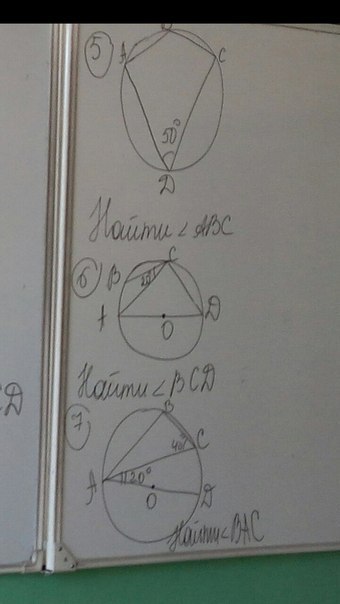 5
A
C
50°
D
Найти < ABC
C
B
6
A
O
D
Найти < BCD
СD
7
B
C
A
20°
O
D
Найти < BAC